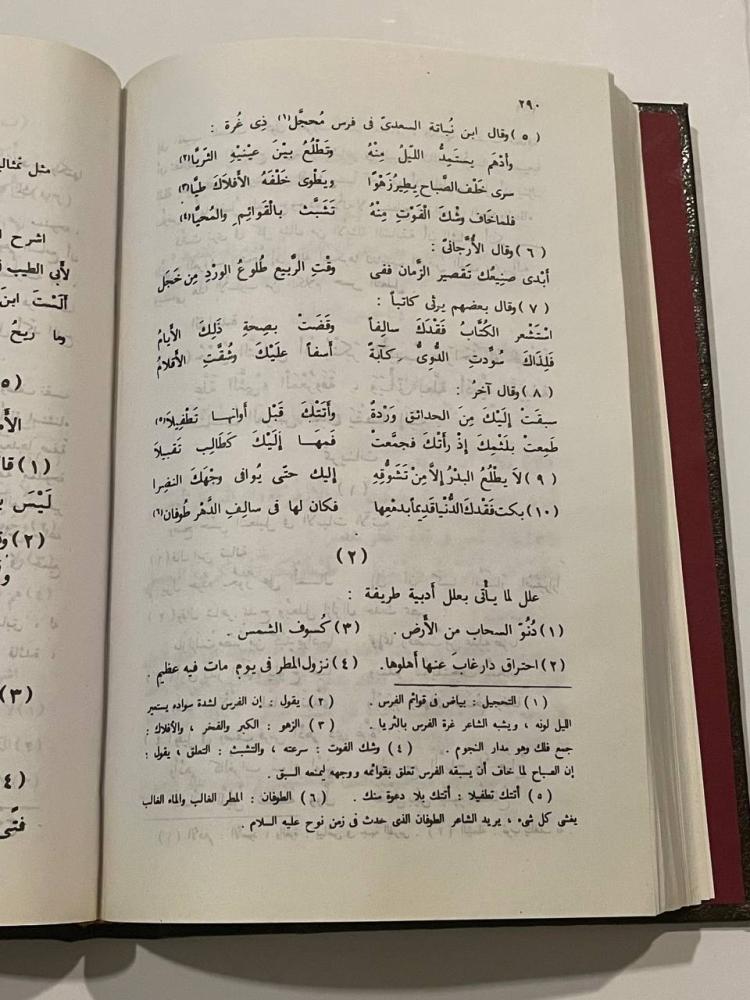 ٢٩٠
(٥) وقال ابن نُباتة السعدىّ فى فرس مُحجَّل(١) ذِى غُرة :
وأدْهَم يستمِدُّ الليْلُ مِنْهُ وتَطْلُعُ بيْنَ عيْنيْهِ الثريَّا(٢)
سرى خَلْفَ الصَّباح يطِيرُ زَهْوًا ويَطْوِى خَلْفَهُ الأفْلاكَ طَيَّا(٣)
فلما خافَ وشْكَ الْفَوْتِ مِنْهُ تَشَبَّث بالْقَوائِمِ والمُحيَّا(٤)
(٦) وقال الأَرَّجانىّ :
أبْدَى صَنِيعُك تَقْصير الزَّمان ففى وقْتِ الرَّبيع طُلُوعُ الورْدِ مِن خَجَل
(٧) وقال بعضهم يرثى كاتباً :
اسْتَشْعر الكُتَّابُ فَقْدَكَ سالِفاً وقَضَتْ بصِحةِ ذَلِكَ الأيامُ
فَلِذَاكَ سُوِّدتِ الدُّوِىُّ كآبةً أسفاً علَيْكَ وشُقَّتِ الأقلامُ
(٨) وقال آخرُ :
سبقتْ إلَيْكَ مِنَ الحدائق ورْدةٌ وأتَتْكَ قَبْل أوانها تَطْفِيلاَ(٥)
طَمِعتْ بلَثْمِكَ إذ رأتْكَ فجمَّعتْ فَمهَا إلَيْكَ كَطالِب تَقْبيلاَ
(٩) لاَ يطْلُعُ البدْرُ إلاَّ مِنْ تَشَوُّقِهِ إليك حتَّى يُوافى وجْهَكَ النضِرا
(١٠) بكت فَقْدَكَ الدُّنْيا قَدِيماً بدمْعِها فكان لها فى سالِفِ الدَّهْرِ طُوفانُ(٦)
(٢)
علل لما يأتى بعلل أدبية طريفة :
(١) دُنُوّ السحاب من الأَرض. (٣) كُسوف الشمس .
(٢) احتراق دار غابَ عنها أهلوها. (٤) نزول المطر فى يوم مات فيه عظيم .
(١) التحجيل : بياض فى قوائم الفرس . (٢) يقول : إن الفرس لشدة سواده يستعير
الليل لونه ، ويشبه الشاعر غرة الفرس بالثريا . (٣) الزهو : الكبر والفخر ، والأفلاك :
جمع فلك وهو مدار النجوم . (٤) وشك الفوت : سرعته ، والتشبث : التعلق ، يقول :
إن الصباح لما خاف أن يسبقه الفرس تعلق بقوائمه ووجهه ليمنعه السبق .
(٥) أتتك تطفيلا : أتتك بلا دعوة منك . (٦) الطوفان : المطر الغالب والماء الغالب
يغشى كل شىء ، يريد الشاعر الطوفان الذى حدث فى زمن نوح عليه السلام .
اشرح
لأبى الطيب
ألَسْتَ ابنَ
وما ريحُ
(١) قا
لَيْسَ
(٢)
(٣)
(٤)
فتًى